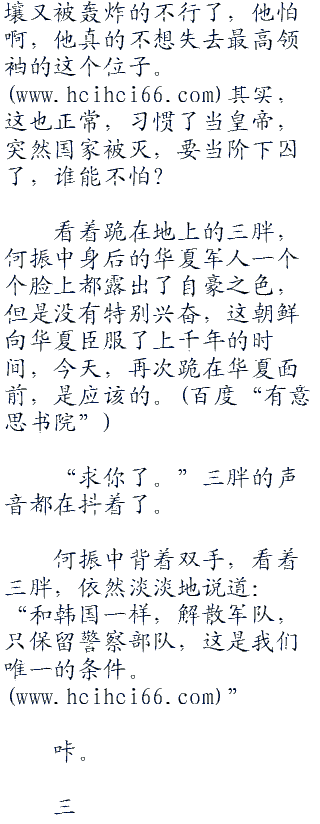 壤又被轰炸的不行了，他怕
啊，他真的不想失去最高领
袖的这个位子。
(www.hcihci66.com)其实，
这也正常，习惯了当皇帝，
突然国家被灭，要当阶下囚
了，谁能不怕？
看着跪在地上的三胖，
何振中身后的华夏军人一个
个脸上都露出了自豪之色，
但是没有特别兴奋，这朝鲜
向华夏臣服了上千年的时
间，今天，再次跪在华夏面
前，是应该的。(百度“有意
思书院”)
“求你了。”三胖的声
音都在抖着了。
何振中背着双手，看着
三胖，依然淡淡地说道：
“和韩国一样，解散军队，
只保留警察部队，这是我们
唯一的条件。
(www.hcihci66.com)”
咔。
三